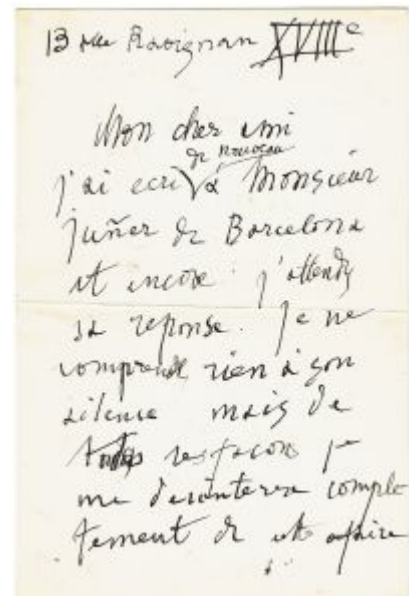 13 rue Ravignan XVIIIe
Mon cher ami
de nouveau
j'ai ecri à Monsieur
juñer de Barcelona
et encore j'attends
sa reponse. je ne
comprends rien a son
silence mais de
toutes les facons je
me desinteresse comple
tement de cette afaire